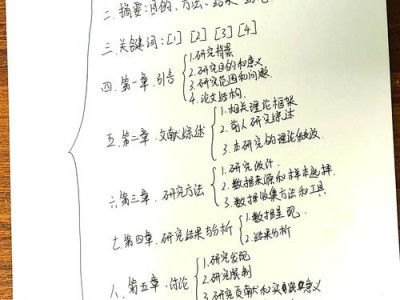 二.摘要:目的、方法、结果
三.关键词:[1] [2] [3] [4]
四.第一章.引言
1.研究背景
2.研究目的和意义
3.研究范围和问题
4.论文结构.
五.第二章.文献综述
1.相关理论框架
2.前人研究综述
3.本研究的理论
六.第三章.研究方法
1.研究设计.
2.数据来源和样本选择.
3.数据收集方法和工具
七.第四章.研究结果与分析
1.数据呈现.
2.结果分析
八.第五章.讨论
1.研究发现
2.研究限制
3.研究贡献和实意义